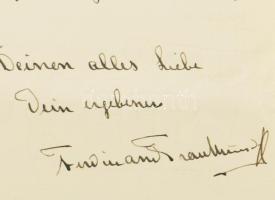 Deinen alles Liebe
Dein ergebener
Ferdinand